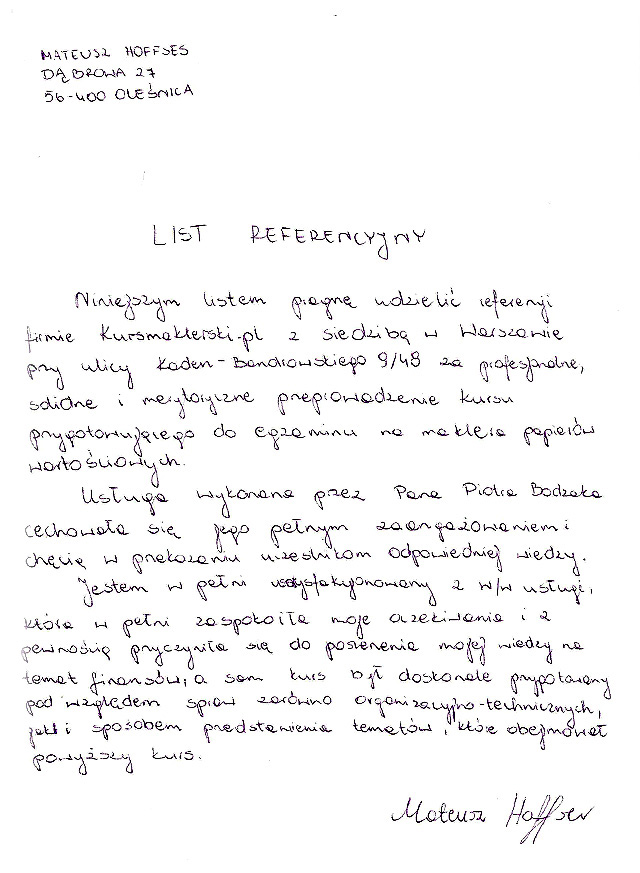 MATEUSZ HOFFSES
DĄBROWA 27
56-400 OLEŚNICA
LIST REFERENCYJNY
Niniejszym listem pragnę udzielić referencji
firmie Kursmaklerski.pl z siedzibą w Warszawie
przy ulicy Kaden-Bandrowskiego 9/48 za profesjonalne,
solidne i merytoryczne przeprowadzenie kursu
przygotowującego do egzaminu na maklera papierów
wartościowych.
Usługa wykonana przez Pana Piotra Bodzaka
cechowała się jego pełnym zaangażowaniem i
chęcią w przekazaniu uczestnikom odpowiedniej wiedzy.
Jestem w pełni usatysfakcjonowany z w/w usługi,
która w pełni zaspokoiła moje oczekiwania i z
pewnością przyczyniła się do poszerzenia mojej wiedzy na
temat finansów, a sam kurs był doskonale przygotowany
pod względem spraw zarówno organizacyjno-technicznych,
jak i sposobem przedstawienia tematów, które obejmował
powyższy kurs.
Mateusz Hoffses